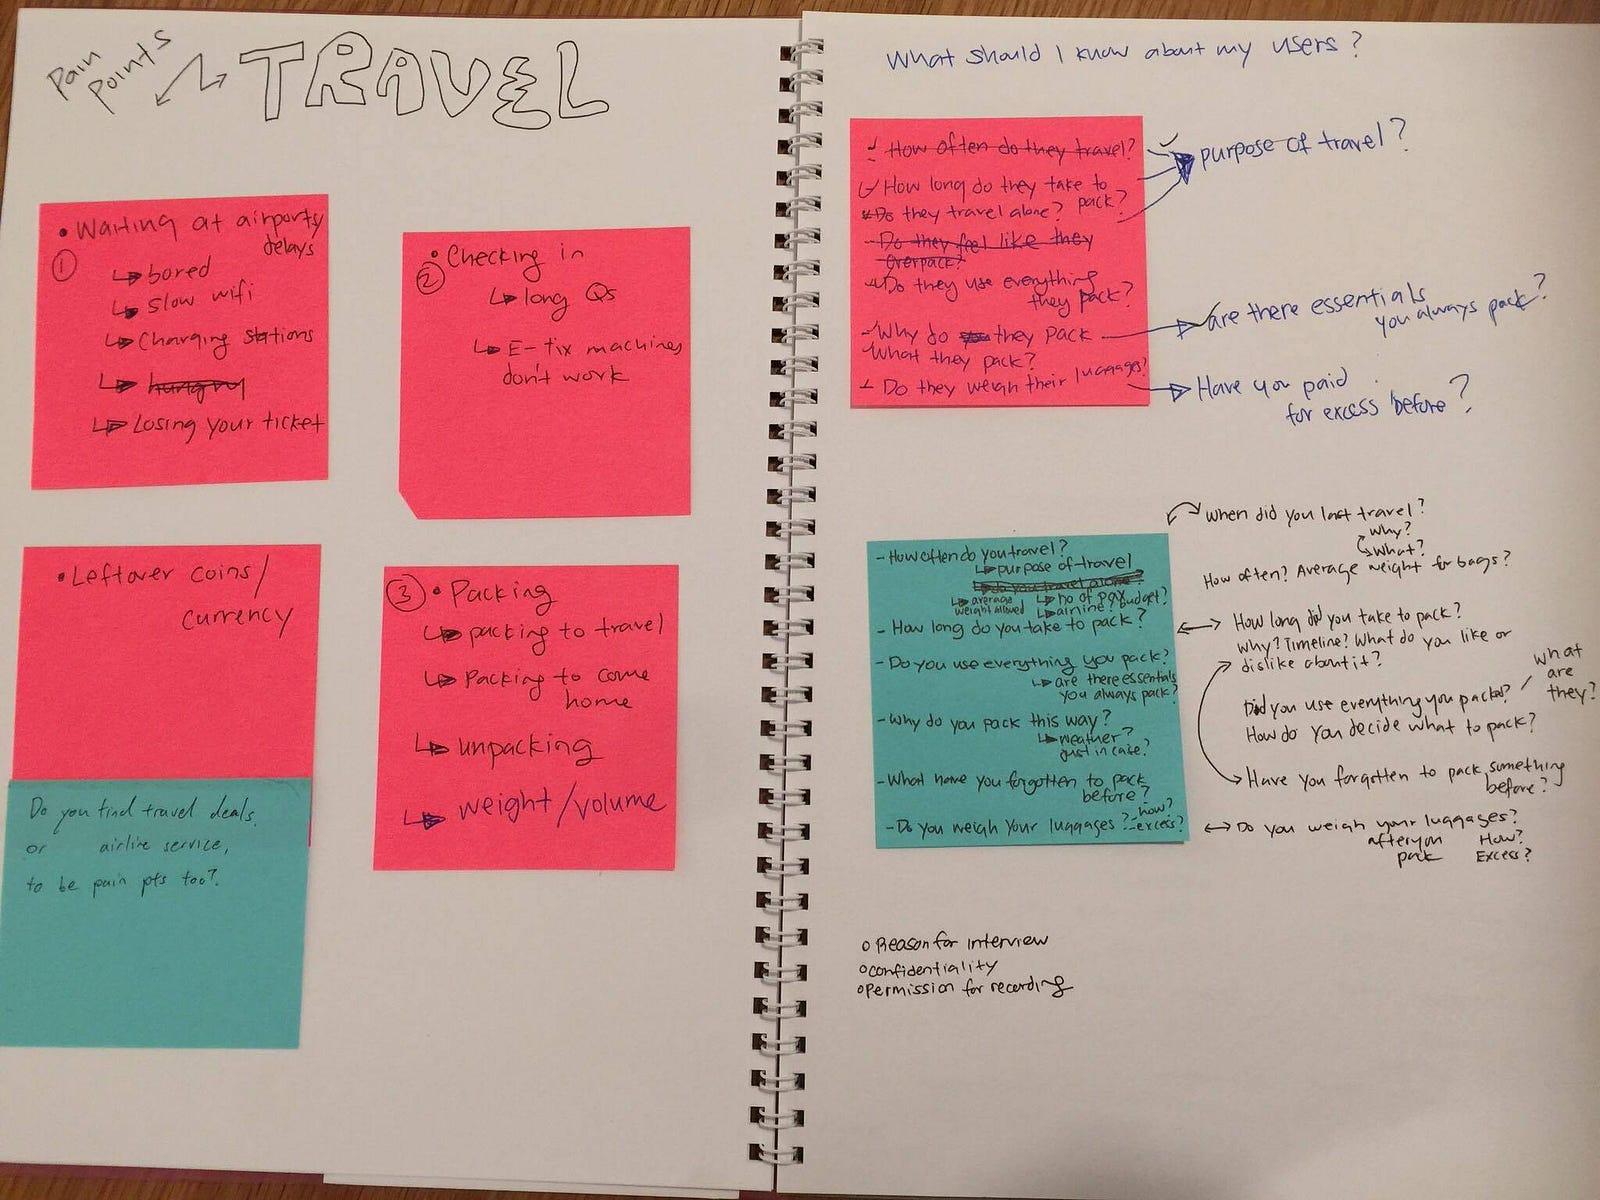 Pain
points
TRAVEL
• Waiting at airports/
delays
1
↳ bored
↳ slow wifi
↳ Charging stations
↳ hungry
↳ Losing your ticket
• Checking in
2
↳ long Qs
↳ E-tix machines
don't work
• Leftover coins/
currency
Do you find travel deals,
or airline service,
to be pain pts too?
3 • Packing
↳ packing to travel
↳ Packing to come
home
↳ unpacking
↳ weight/volume
What should I know about my users?
How often do they travel?
How long do they take to
pack?
Do they travel alone?
Do they feel like they
overpack?
Do they use everything
they pack?
- Why do they pack
What they pack?
- Do they weigh their luggages?
purpose of travel?
are there essentials
you always pack?
Have you paid
for excess before?
- How often do you travel?
↳ purpose of travel
↳ do you travel alone?
↳ average
weight allowed
↳ no of pax
↳ airline? budget?
- How long do you take to pack?
- Do you use everything you pack?
↳ are there essentials
you always pack?
- Why do you pack this way?
↳ weather?
just in case?
- What have you forgotten to pack
before?
- Do you weigh your luggages?
- how?
- excess?
When did you last travel?
why?
what?
How often? Average weight for bags?
How long did you take to pack?
Why? Timeline? What do you like or
dislike about it?
Did you use everything you packed?
what
are
they?
How do you decide what to pack?
Have you forgotten to pack something
before?
Do you weigh your luggages?
after you
pack
How?
Excess?
o Reason for interview
o confidentiality
o Permission for recording